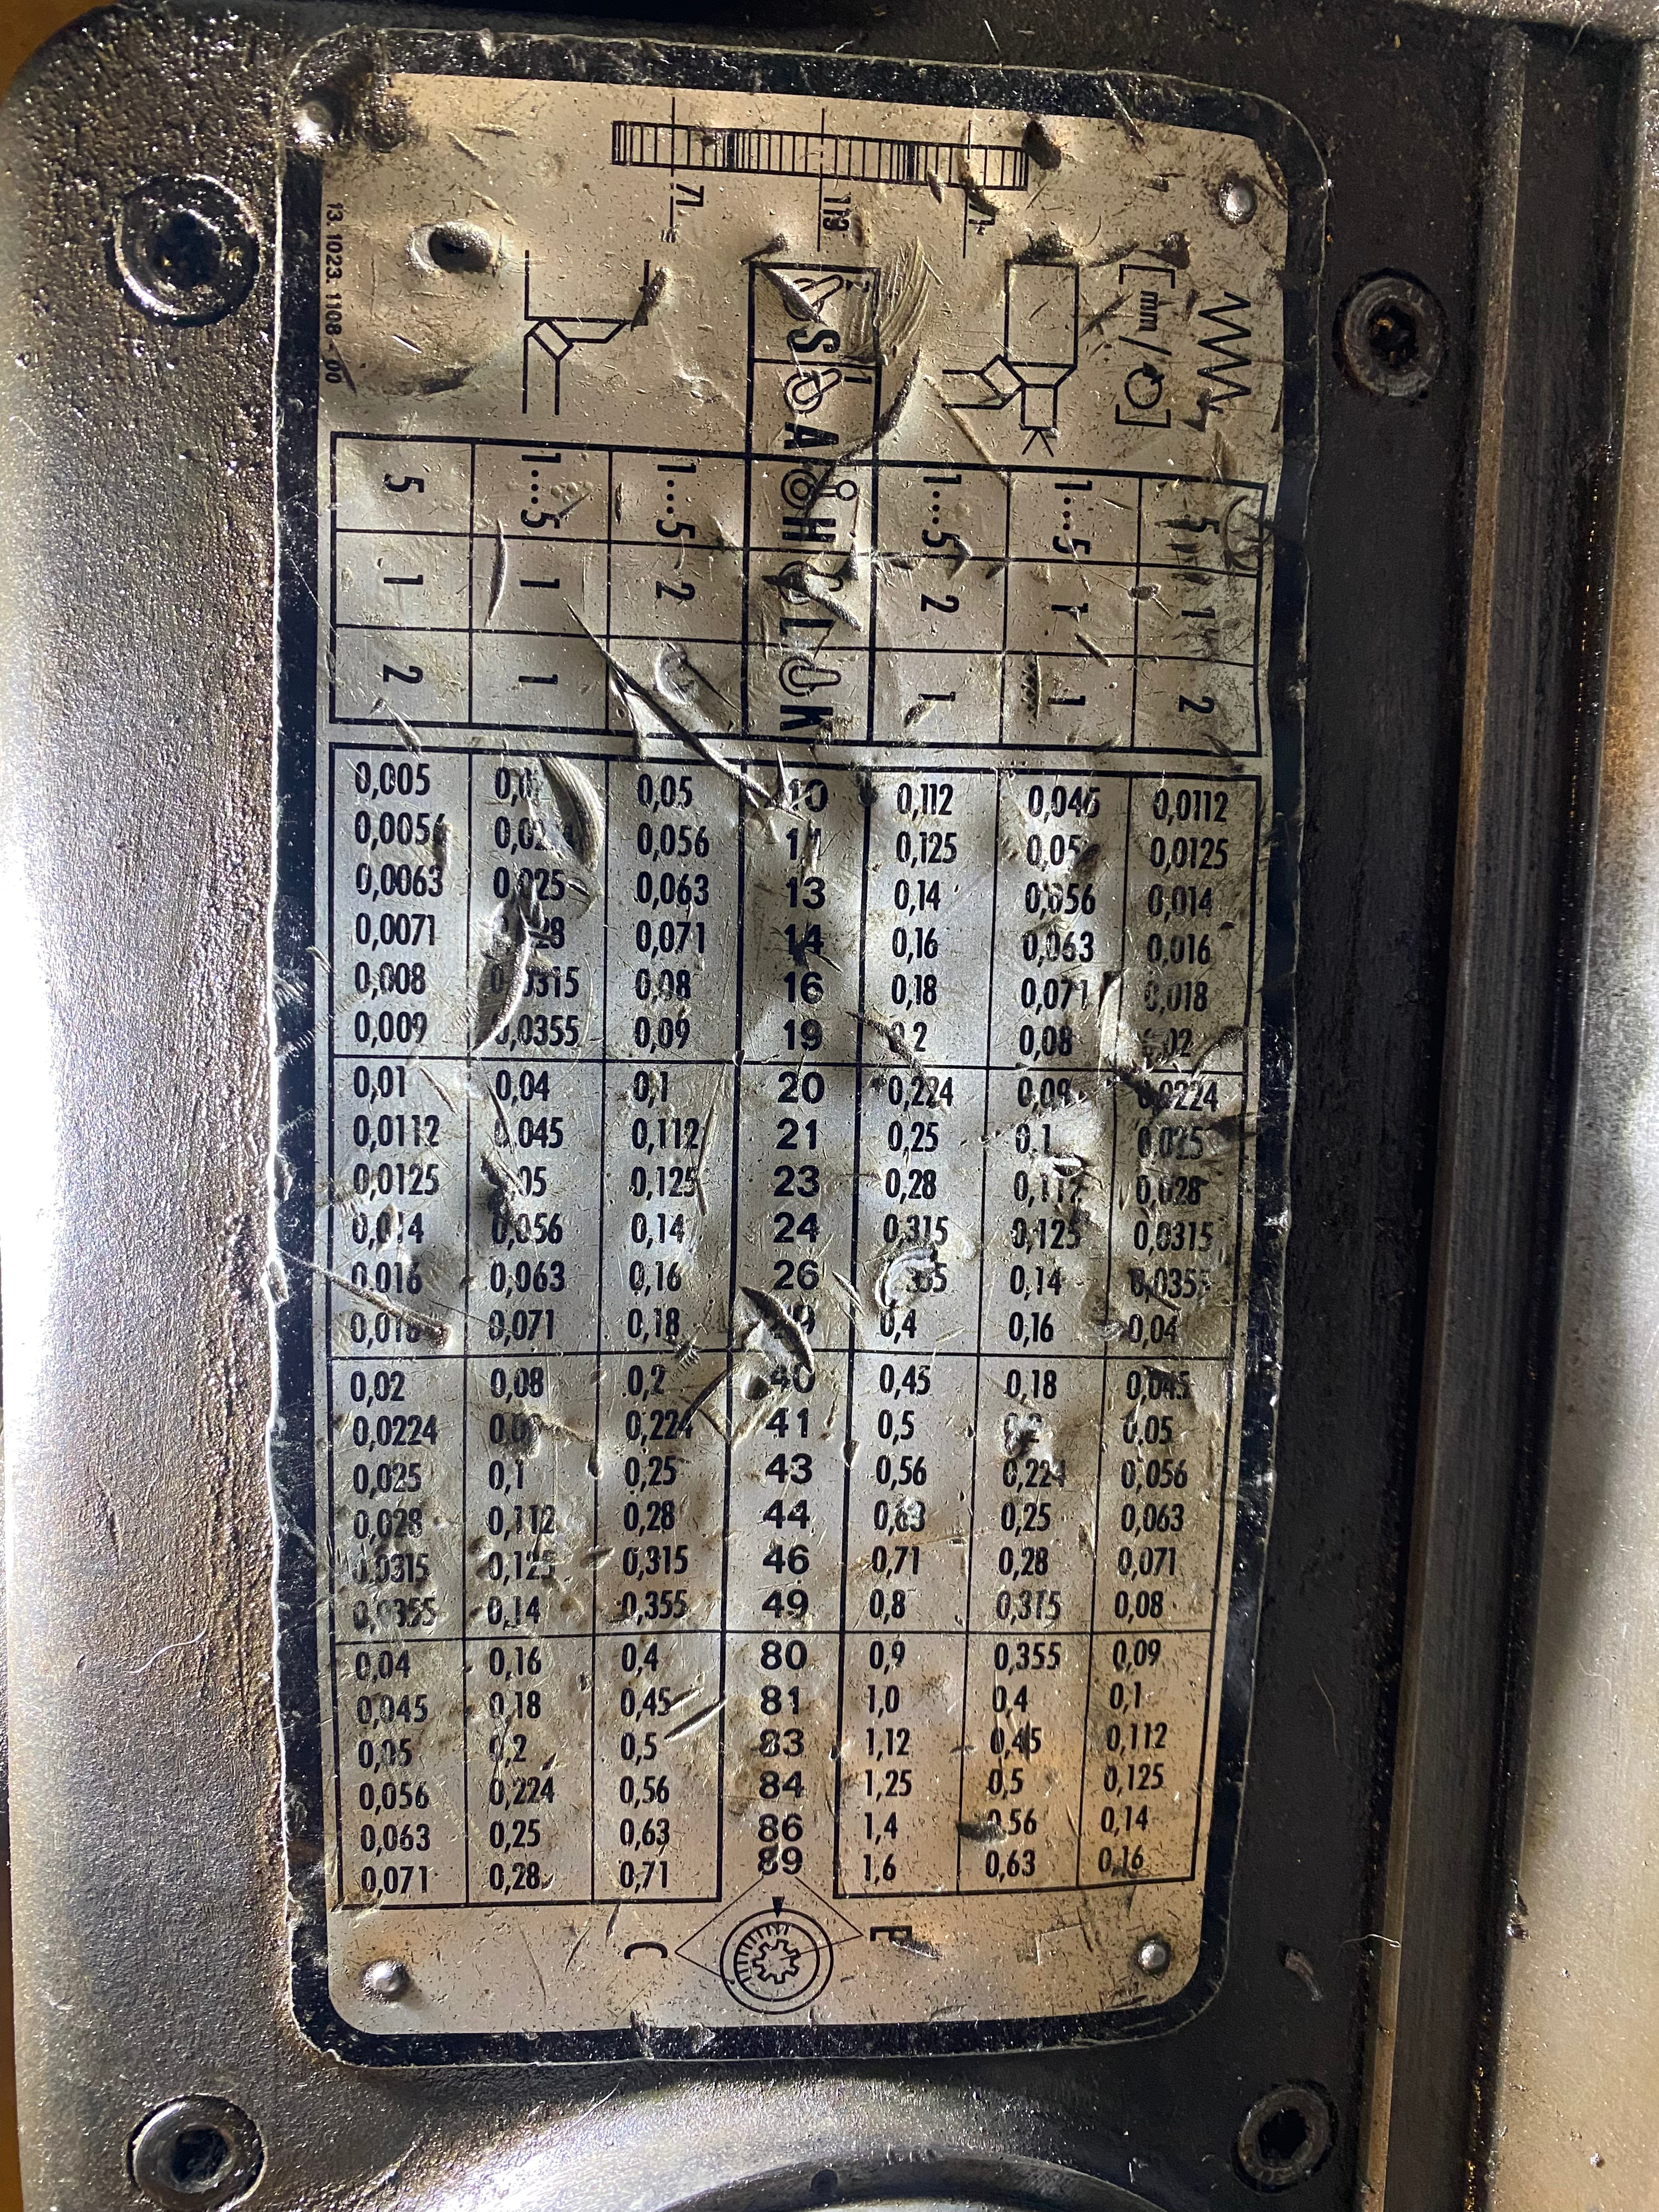 71
119
71
13. 1023. 1108 - 00
[mm/ ]
S A H L K
5 1…5 1…5 1…5 1…5 5
1 1 2 2 1 1
2 1 1 1 2
0,005 0,05 10 0,112 0,045 0,0112
0,0056 0,056 11 0,125 0,05 0,0125
0,0063 0,025 0,063 13 0,14 0,056 0,014
0,0071 0,071 14 0,16 0,063 0,016
0,008 0,0315 0,08 16 0,18 0,071 0,018
0,009 0,0355 0,09 19 0,2 0,08 0,02
0,01 0,04 0,1 20 0,224 0,09 0,0224
0,0112 0,045 0,112 21 0,25 0,1 0,025
0,0125 0,05 0,125 23 0,28 0,112 0,028
0,014 0,056 0,14 24 0,315 0,125 0,0315
0,016 0,063 0,16 26 0,355 0,14 0,0355
0,018 0,071 0,18 29 0,4 0,16 0,04
0,02 0,08 0,2 40 0,45 0,18 0,045
0,0224 0,09 0,224 41 0,5 0,2 0,05
0,025 0,1 0,25 43 0,56 0,224 0,056
0,028 0,112 0,28 44 0,63 0,25 0,063
0,0315 0,125 0,315 46 0,71 0,28 0,071
0,0355 0,14 0,355 49 0,8 0,315 0,08
0,04 0,16 0,4 80 0,9 0,355 0,09
0,045 0,18 0,45 81 1,0 0,4 0,1
0,05 0,2 0,5 83 1,12 0,45 0,112
0,056 0,224 0,56 84 1,25 0,5 0,125
0,063 0,25 0,63 86 1,4 0,56 0,14
0,071 0,28 0,71 89 1,6 0,63 0,16
C